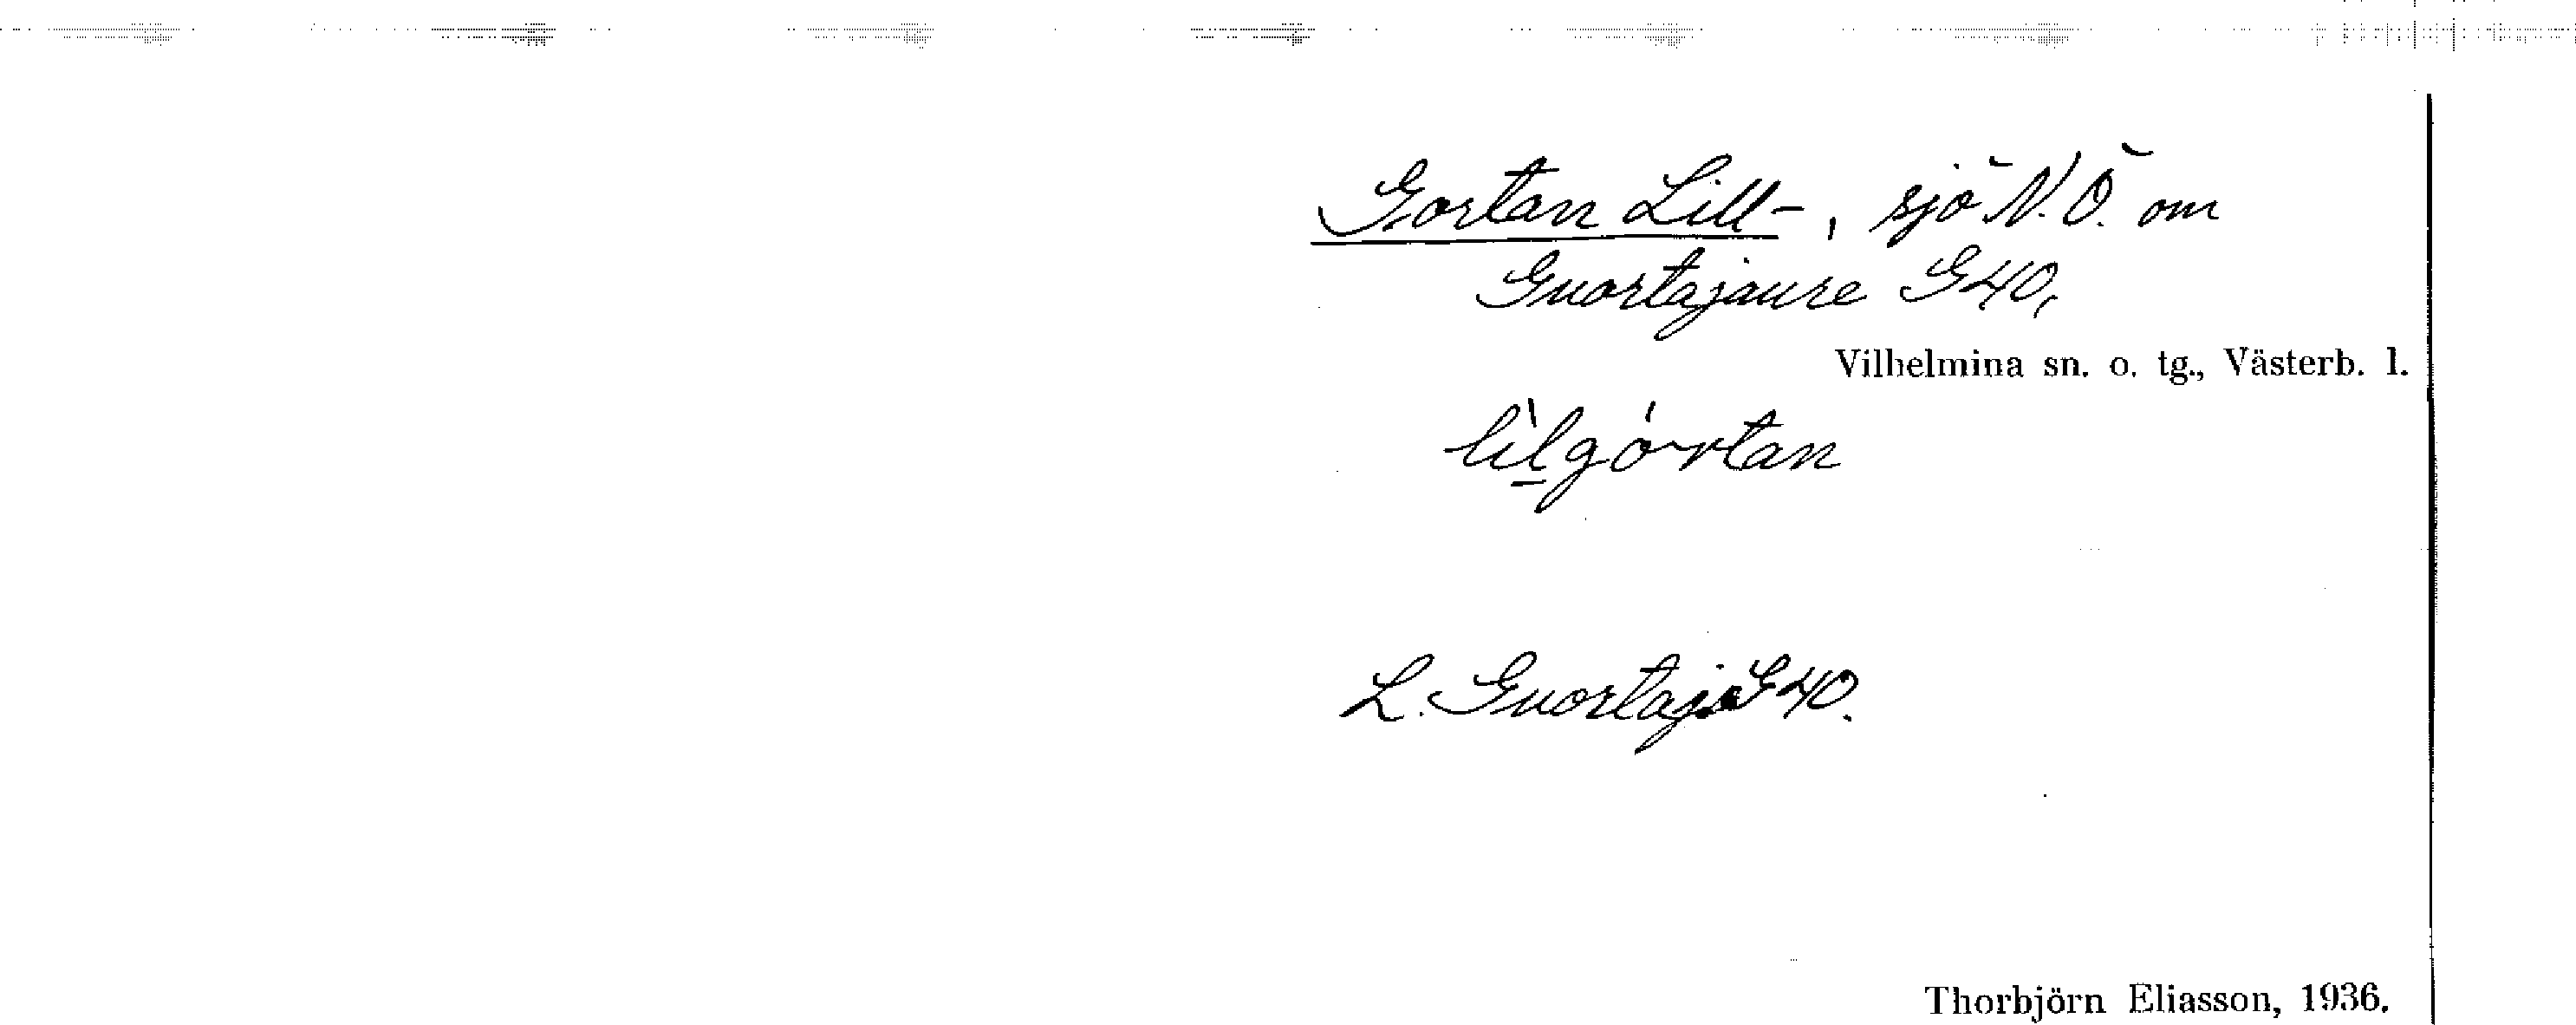 Gortan Lill-, sjö N.Ö. om
Guortajaure G40,
Vilhelmina sn. o. tg., Västerb. l.
lìlgórtan
L. Guortaj. G40.
Thorbjörn Eliasson, 1936.